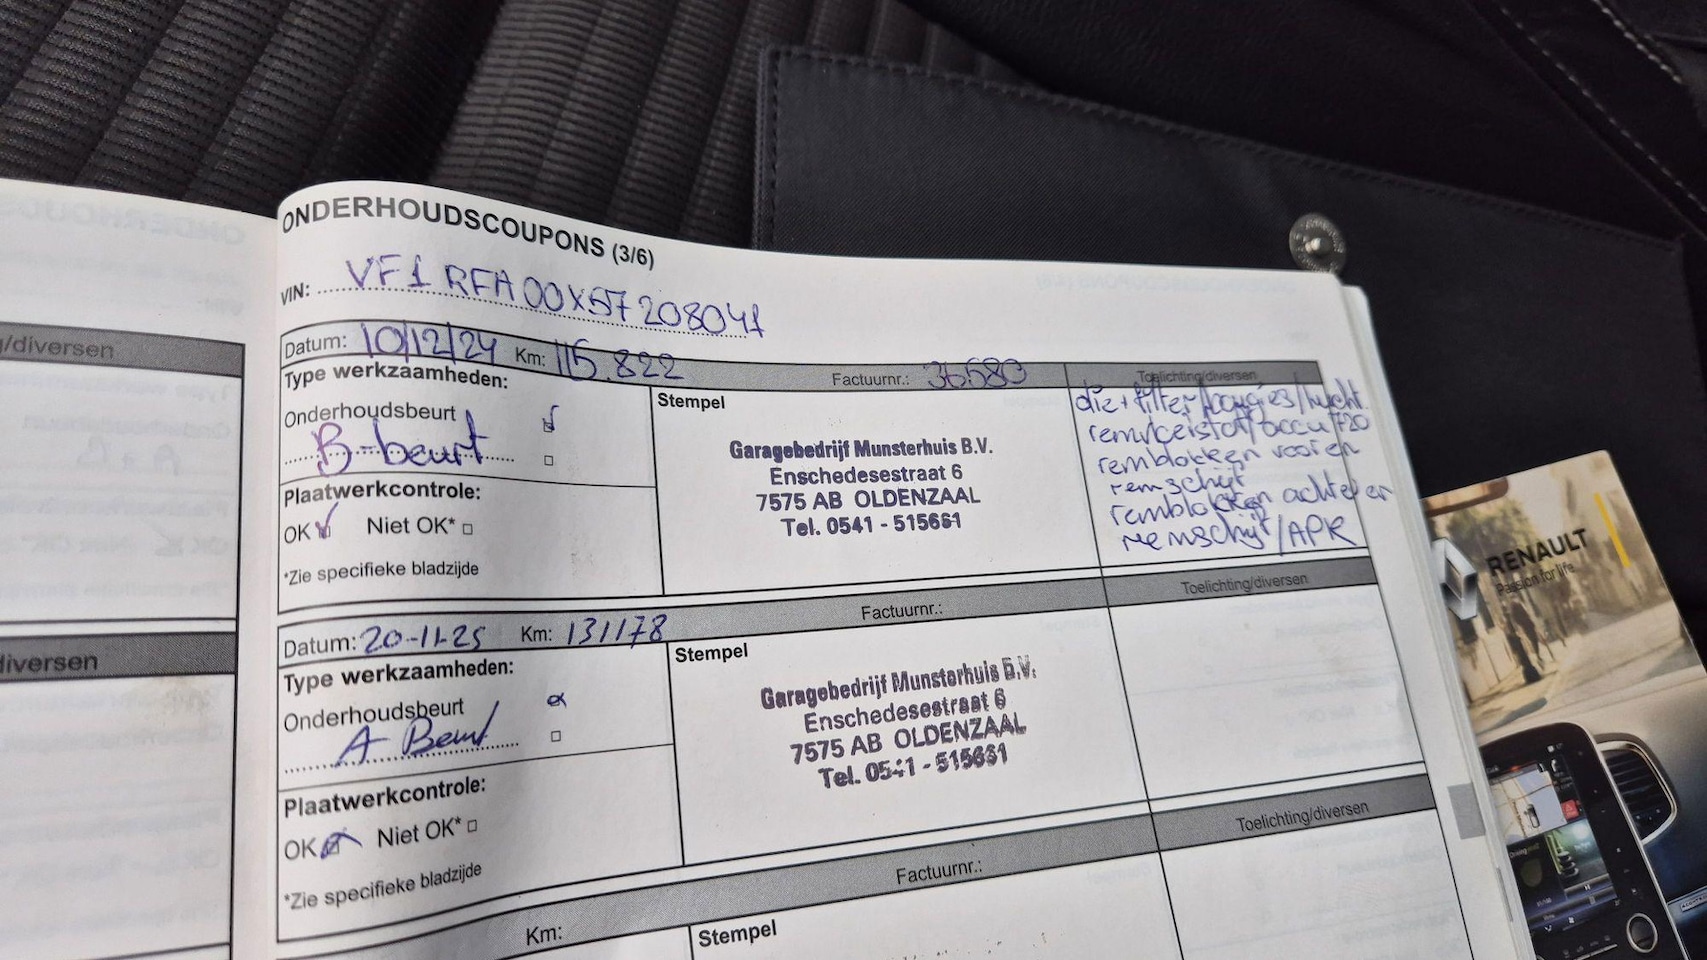 ONDERHOUDSCOUPONS (3/6)
VIN: VF1RFA00X57208041
Datum: 10/12/24 Km: 115.822 Factuurnr.: 36580 Toelichting/diversen
Type werkzaamheden:
Onderhoudsbeurt
B-beurt
Plaatwerkcontrole:
OK Niet OK*
*Zie specifieke bladzijde
Stempel
Garagebedrijf Munsterhuis B.V.
Enschedesestraat 6
7575 AB OLDENZAAL
Tel. 0541 - 515661
olie+filter/bougies/lucht
remvloeistof/accu 720
remblokken voor en
remschijf
remblokken achter en
remschijf/APK
Datum: 20-11-25 Km: 131178 Factuurnr.: Toelichting/diversen
Type werkzaamheden:
Onderhoudsbeurt
A Beurt
Plaatwerkcontrole:
OK Niet OK*
*Zie specifieke bladzijde
Stempel
Garagebedrijf Munsterhuis B.V.
Enschedesestraat 6
7575 AB OLDENZAAL
Tel. 0541 - 515661
Km: Factuurnr.: Toelichting/diversen
Stempel
g/diversen
diversen
RENAULT
Passion for life